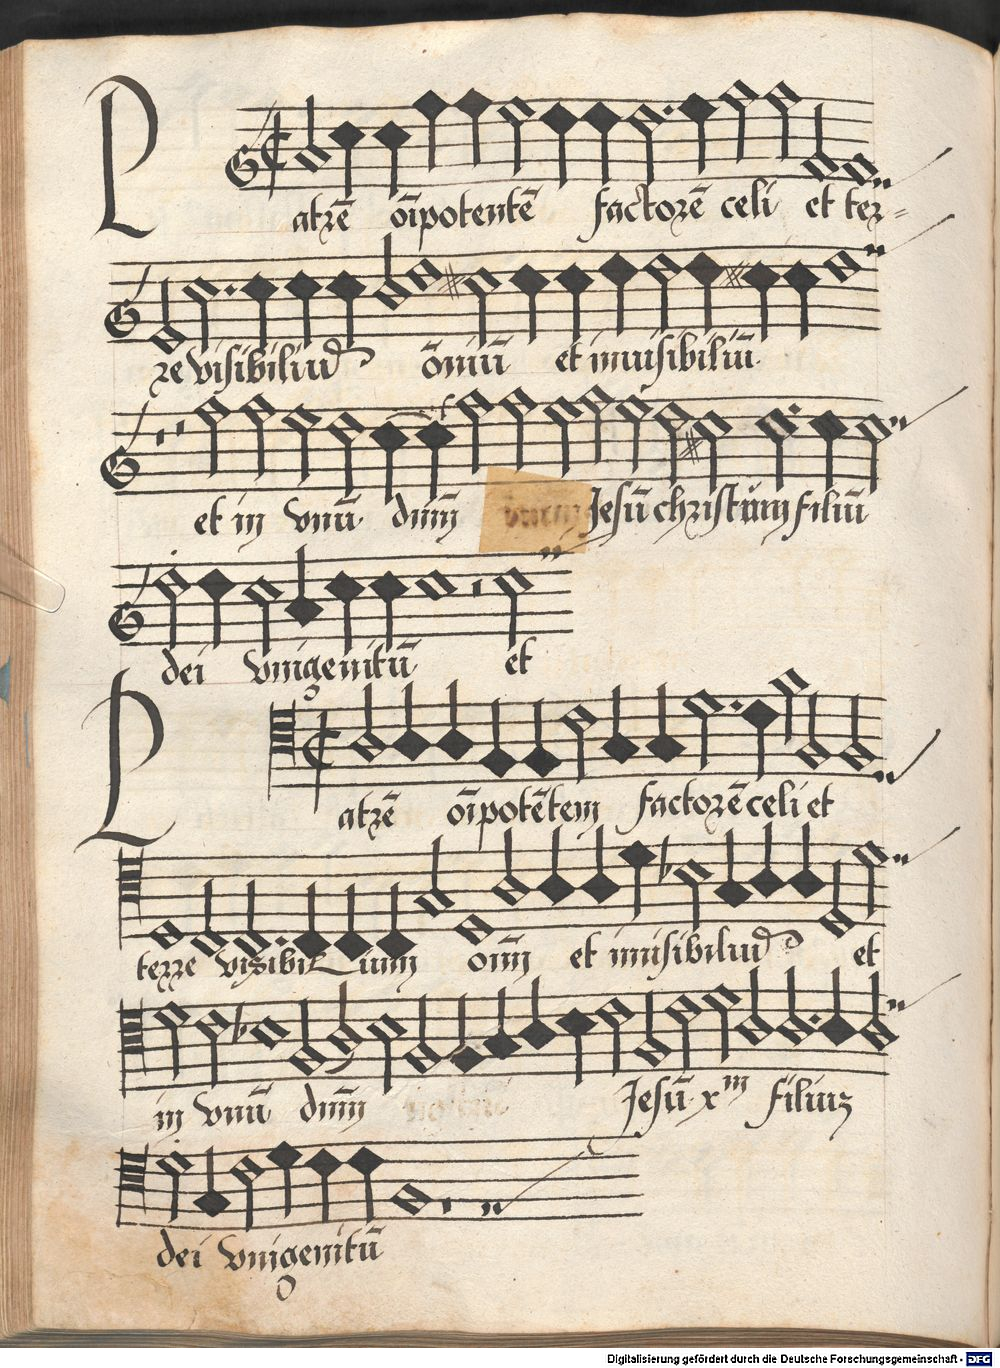 Patrē oīpotentē factorē celi et ter=
re visibiliū ōmiū et inuisibiliū
et in vnū dnm̄ Jesū christum filiū
dei vnigenitū et
Patrē oīpotētem factorē celi et
terre visibilium oīm et inuisibiliū et
in vnū dnm̄ Jesū xm filium
dei vnigenitū
Digitalisierung gefördert durch die Deutsche Forschungsgemeinschaft - DFG